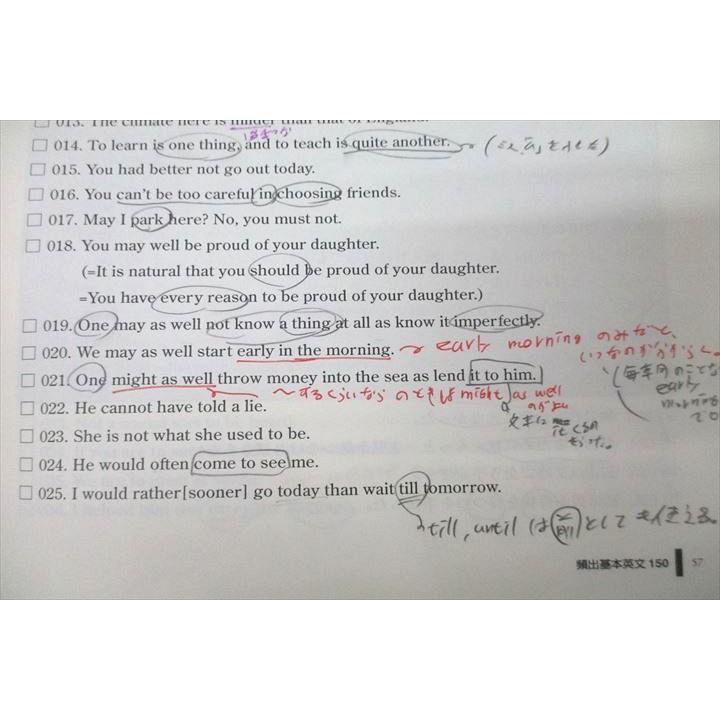 013. The climate here is milder than that of England.
□ 014. To learn is one thing, and to teach is quite another.
□ 015. You had better not go out today.
□ 016. You can't be too careful in choosing friends.
□ 017. May I park here? No, you must not.
□ 018. You may well be proud of your daughter.
(=It is natural that you should be proud of your daughter.
=You have every reason to be proud of your daughter.)
□ 019. One may as well not know a thing at all as know it imperfectly.
□ 020. We may as well start early in the morning. early morning のみだと、
□ 021. One might as well throw money into the sea as lend it to him.
〜するくらいなら のときは might as well
early
□ 022. He cannot have told a lie.
文末に
it
□ 023. She is not what she used to be.
□ 024. He would often come to see me.
□ 025. I would rather[sooner] go today than wait till tomorrow.
till, until は として も使える。
頻出基本英文 150 57